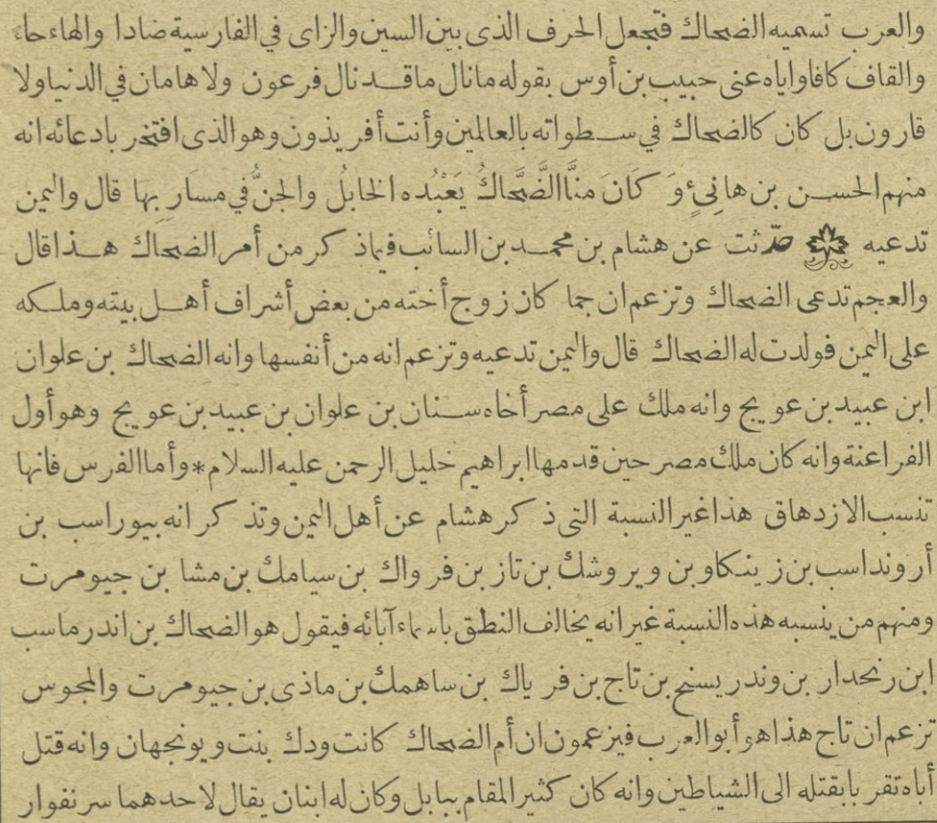 والعرب تسميه الضحاك فتجعل الحرف الذى بين السين والزاى فى الفارسية ضادا والهاء حاء
والقاف كافا واياه عنى حبيب بن أوس بقوله مانال ماقد نال فرعون ولا هامان فى الدنيا ولا
قارون بل كان كالضحاك فى سطواته بالعالمين وأنت أفريذون وهو الذى افتخر بادعائه انه
منهم الحسن بن هانئ وَكَانَ منَّا الضَّحَّاكُ يَعْبُده الخابلُ والجنُّ فى مسَارِبِها قال واليمن
تدعيه حدّثت عن هشام بن محمد بن السائب فيما ذكر من أمر الضحاك هذا قال
والعجم تدعى الضحاك وتزعم ان جما كان زوج أخته من بعض أشراف أهل بيته وملكه
على اليمن فولدت له الضحاك قال واليمن تدعيه وتزعم انه من أنفسها وانه الضحاك بن علوان
ابن عبيد بن عويج وانه ملك على مصر أخاه سنان بن علوان بن عبيد بن عويج وهو أول
الفراعنة وانه كان ملك مصر حين قدمها ابراهيم خليل الرحمن عليه السلام * وأما الفرس فانها
تنسب الازدهاق هذا غير النسبة التى ذكر هشام عن أهل اليمن وتذكر انه بيوراسب بن
أرونداسب بن زينكاو بن ويروشك بن تاز بن فرواك بن سيامك بن مشا بن جيومرت
ومنهم من ينسبه هذه النسبة غير انه يخالف النطق باسماء آبائه فيقول هو الضحاك بن اندرماسب
ابن رنحدار بن وندريسنج بن تاج بن فرياك بن ساهمك بن ماذى بن جيومرت والمجوس
تزعم ان تاج هذا هو أبو العرب فيزعمون ان أم الضحاك كانت ودك بنت ويونجهان وانه قتل
أباه تقربا بقتله الى الشياطين وانه كان كثير المقام ببابل وكان له ابنان يقال لاحدهما سرنفوار